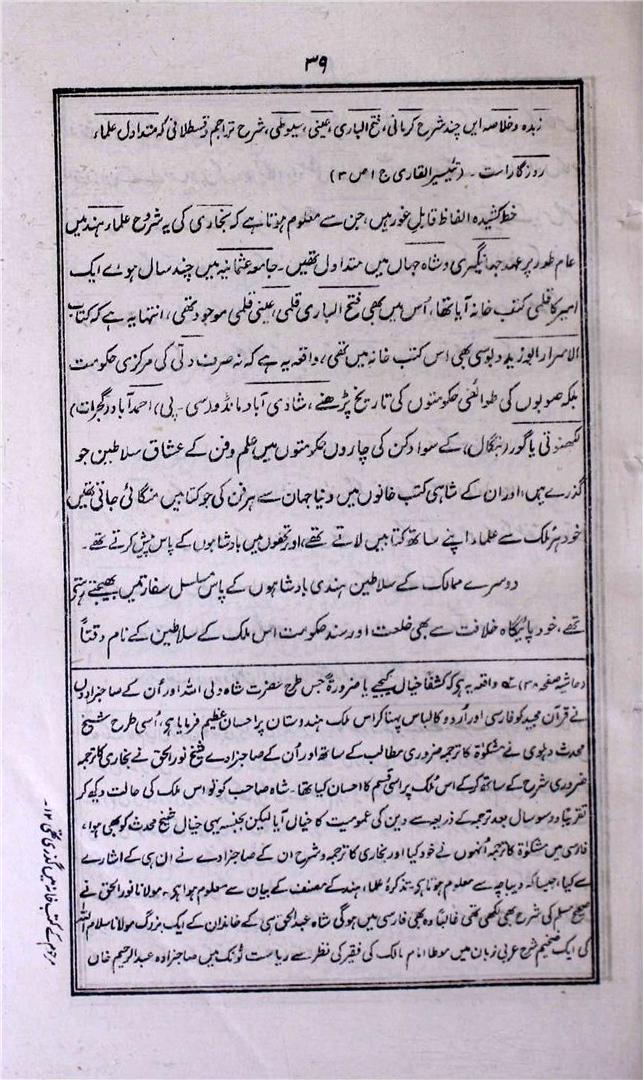 ۳۹
زبدہ وخلاصہ ایں چند شرح کرمانی، فتح الباری، عینی، سیوطی، شرح تراجم قسطلانی کہ متداول علماء
روزگار است ۔ (تیسیر القاری ج ۱ ص ۳)
خط کشیدہ الفاظ قابلِ غور ہیں، جن سے معلوم ہوتا ہے کہ بخاری کی یہ شروح علماء ہند میں
عام طور پر عہد جہانگیری و شاہ جہاں میں متداول تھیں۔ جامعہ عثمانیہ میں چند سال ہوے ایک
امیر کا قلمی کتب خانہ آیا تھا، اُس میں بھی فتح الباری قلمی، عینی قلمی موجود تھی، انتہا یہ ہے کہ کتاب
الاسرار ابو زید دبوسی بھی اس کتب خانہ میں تھی، واقعہ یہ ہے کہ نہ صرف دلّی کی مرکزی حکومت
بلکہ صوبوں کی طوائفی حکومتوں کی تاریخ پڑھئے، شادی آباد مانڈو (سی۔ پی) احمد آباد (گجرات)
لکھنوتی یا گور (بنگال)، کے سوا دکن کی چاروں حکومتوں میں علم و فن کے عشاق سلاطین جو
گذرے ہیں، اور ان کے شاہی کتب خانوں میں دنیا جہان سے ہر فن کی جو کتابیں منگائی جاتی تھیں
خود ہر ملک سے علماء اپنے ساتھ کتابیں لاتے تھے، اور تحفوں میں بادشاہوں کے پاس پیش کرتے تھے۔
دوسرے ممالک کے سلاطین ہندی بادشاہوں کے پاس مسلسل سفارتیں بھیجتے رہتے
تھے، خود پائیگاہ خلافت سے بھی خلعت اور سند حکومت اس ملک کے سلاطین کے نام وقتاً
(حاشیہ صفحہ ۳۸) لہ واقعہ یہ ہی کہ کشفاً خیال کیجیے یا ضرورۃً جس طرح حضرت شاہ ولی اللہ اور اُن کے صاحبزادوں
نے قرآن مجید کو فارسی اور اُردو کا لباس پہنا کر اس ملک ہندوستان پر احسان عظیم فرمایا ہی، اُسی طرح شیخ
محدث دہلوی نے مشکوٰۃ کا ترجمہ ضروری مطالب کے ساتھ اور اُن کے صاحبزادے شیخ نور الحق نے بخاری کا ترجمہ
ضروری شرح کے ساتھ کر کے اس ملک پر اسی قسم کا احسان کیا تھا۔ شاہ صاحب کو تو اس ملک کی حالت دیکھ کر
تقریباً دو سو سال بعد ترجمہ کے ذریعہ سے دین کی عمومیت کا خیال آیا لیکن بجنسہ یہی خیال شیخ محدث کو بھی ہوا،
فارسی میں مشکوٰۃ کا ترجمہ اُنہوں نے خود کیا اور بخاری کا ترجمہ و شرح ان کے صاحبزادے نے ان ہی کے اشارے
سے کیا، جیسا کہ دیباچہ سے معلوم ہوتا ہی، تذکرۂ علماء ہند کے مصنف کے بیان سے معلوم ہوا ہی، مولانا نور الحق نے
صحیح مسلم کی شرح بھی لکھی تھی غالباً وہ بھی فارسی میں ہوگی شاہ عبد الحق ہی کے خاندان کے ایک بزرگ مولانا سلام اللہ
کی ایک ضخیم شرح عربی زبان میں موطا امام مالک کی فقیر کی نظر سے ریاست ٹونک میں صاحبزادہ عبد الرحیم خاں
مرحوم کے کتب خانہ میں گذری تھی ۱۲۔